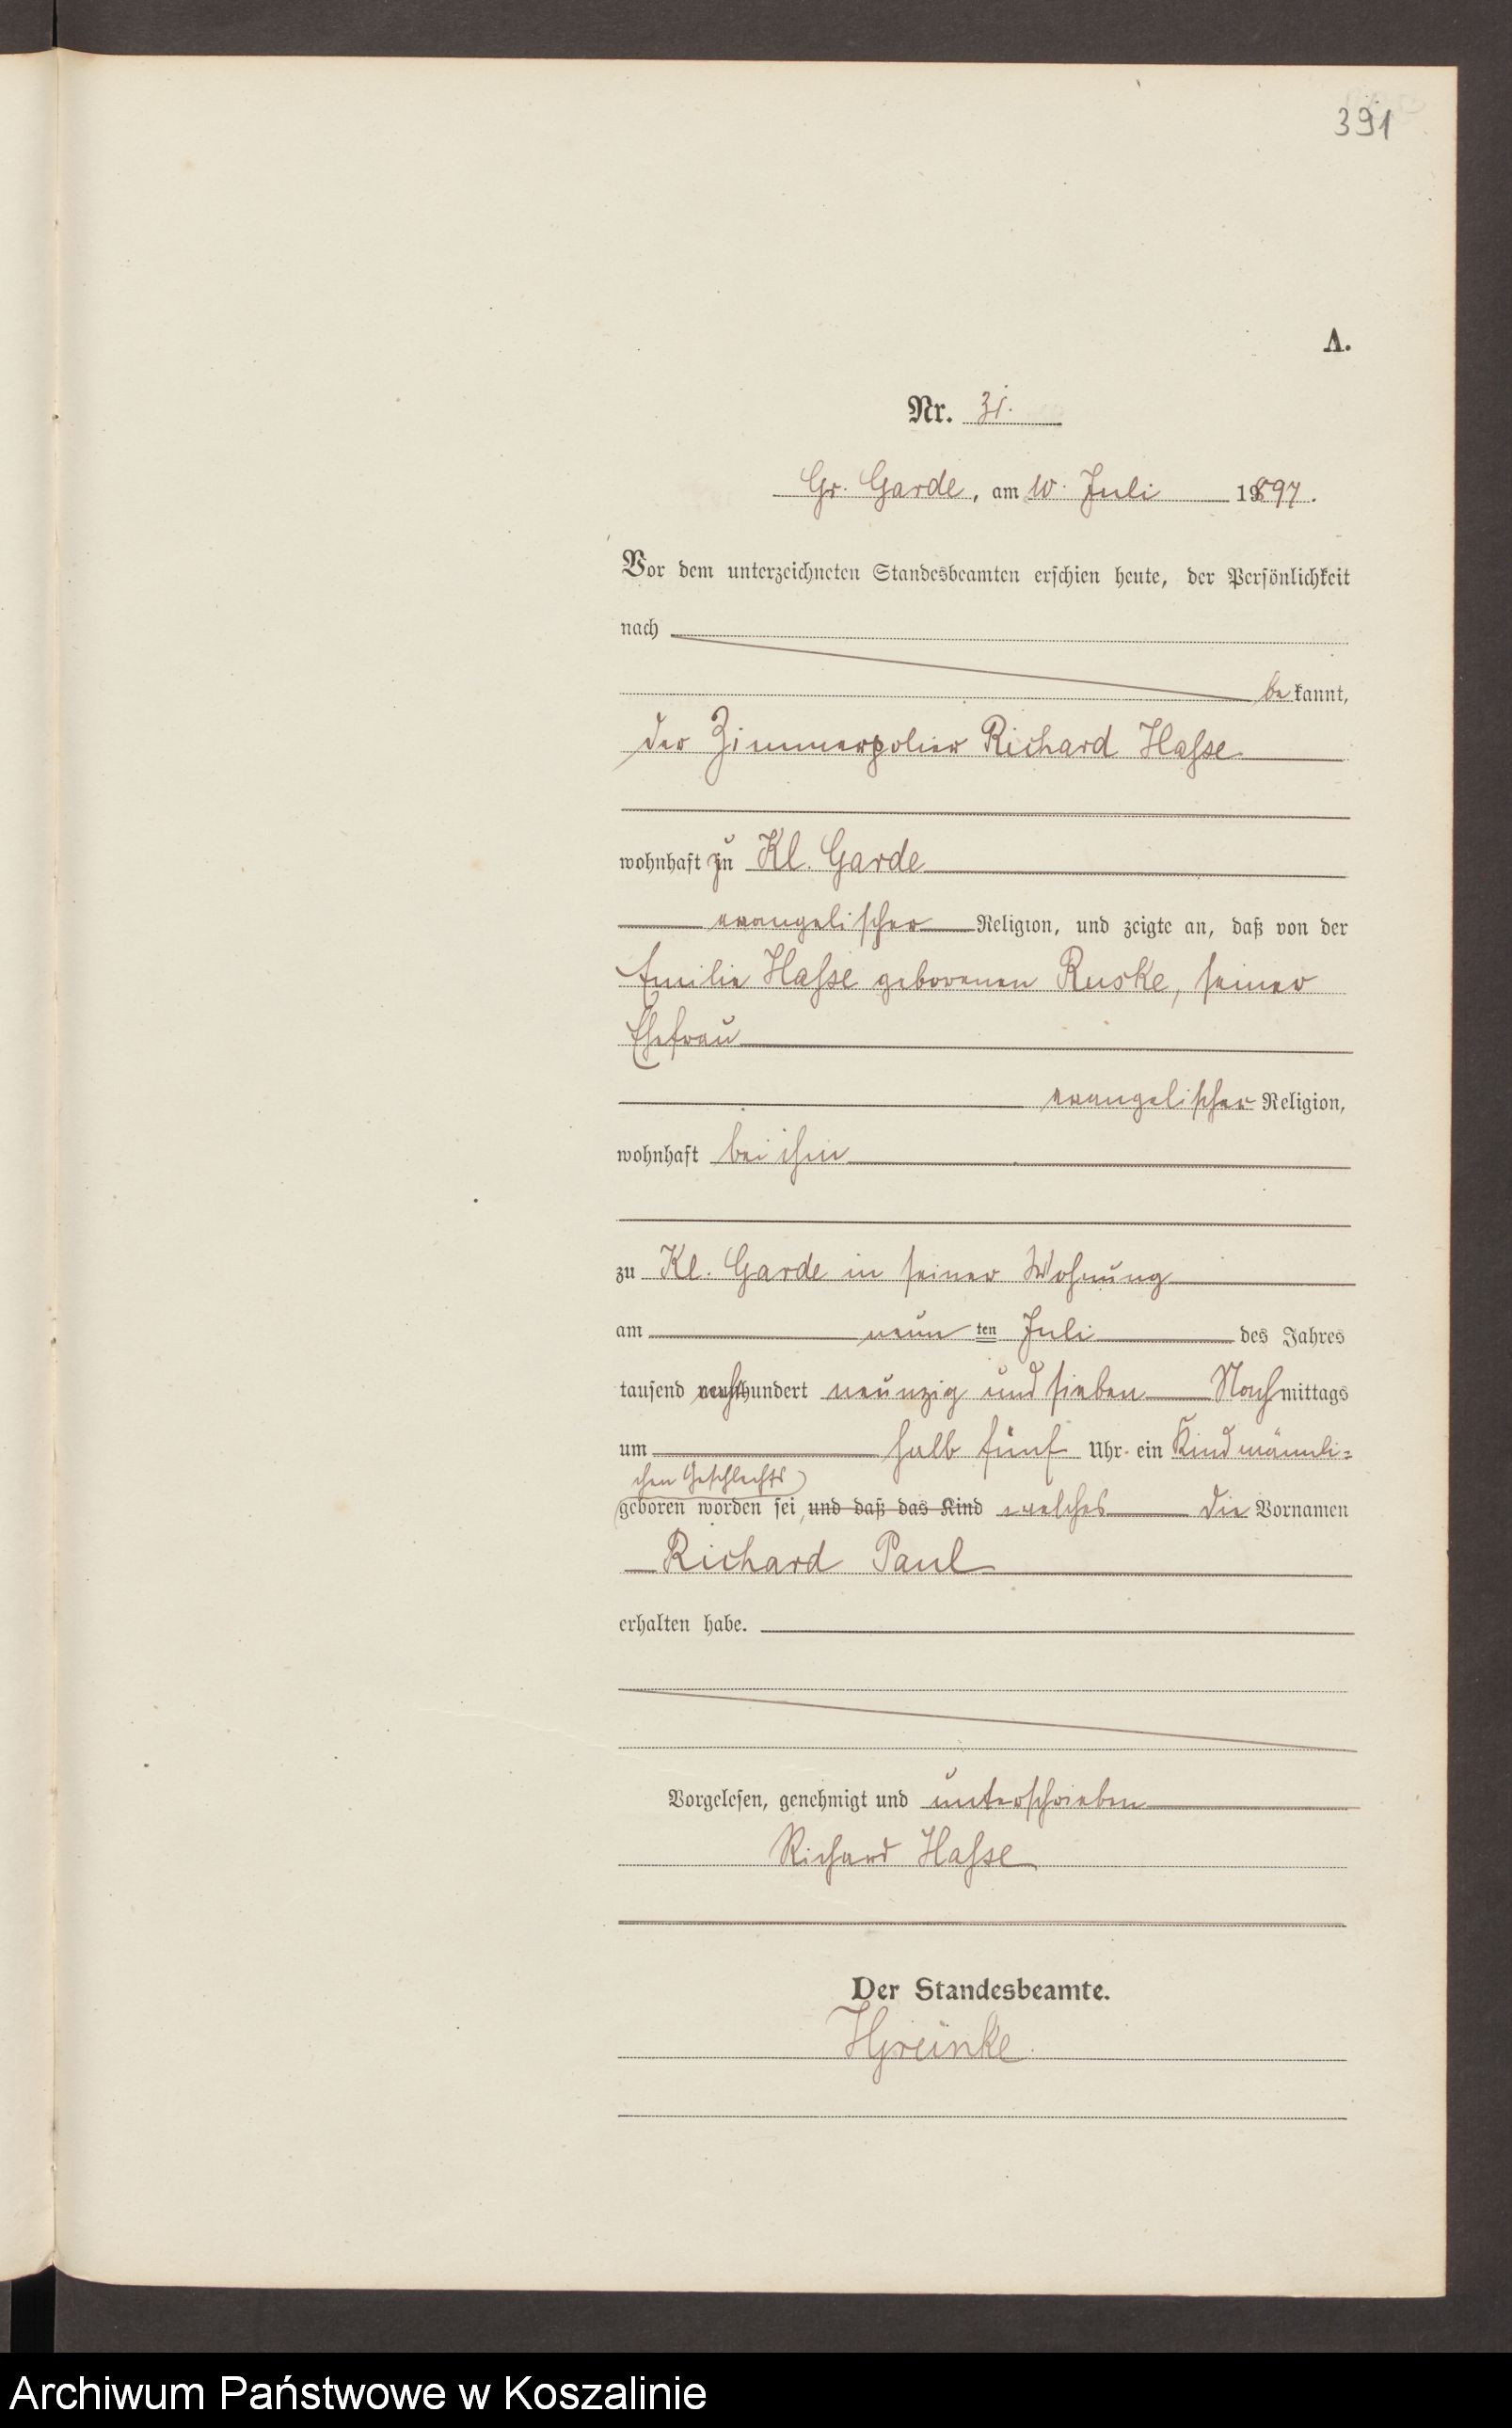 391
A.
Nr. 31.
Gr. Garde, am 10. Juli 1897.
Vor dem unterzeichneten Standesbeamten erschien heute, der Persönlichkeit
nach
bekannt,
der Zimmerpolier Richard Hasse
wohnhaft in Kl. Garde
evangelischer Religion, und zeigte an, daß von der
Emilie Hasse geborenen Ruske, seiner
Ehefrau
evangelischer Religion,
wohnhaft bei ihm
zu Kl. Garde in seiner Wohnung
am neunten Juli des Jahres
tausend achthundert neunzig und sieben Nachmittags
um halb fünf Uhr ein Kind männli=
chen Geschlechts
geboren worden sei, und daß das Kind welches die Vornamen
Richard Paul
erhalten habe.
Vorgelesen, genehmigt und unterschrieben
Richard Hasse
Der Standesbeamte.
Archiwum Państwowe w Koszalinie